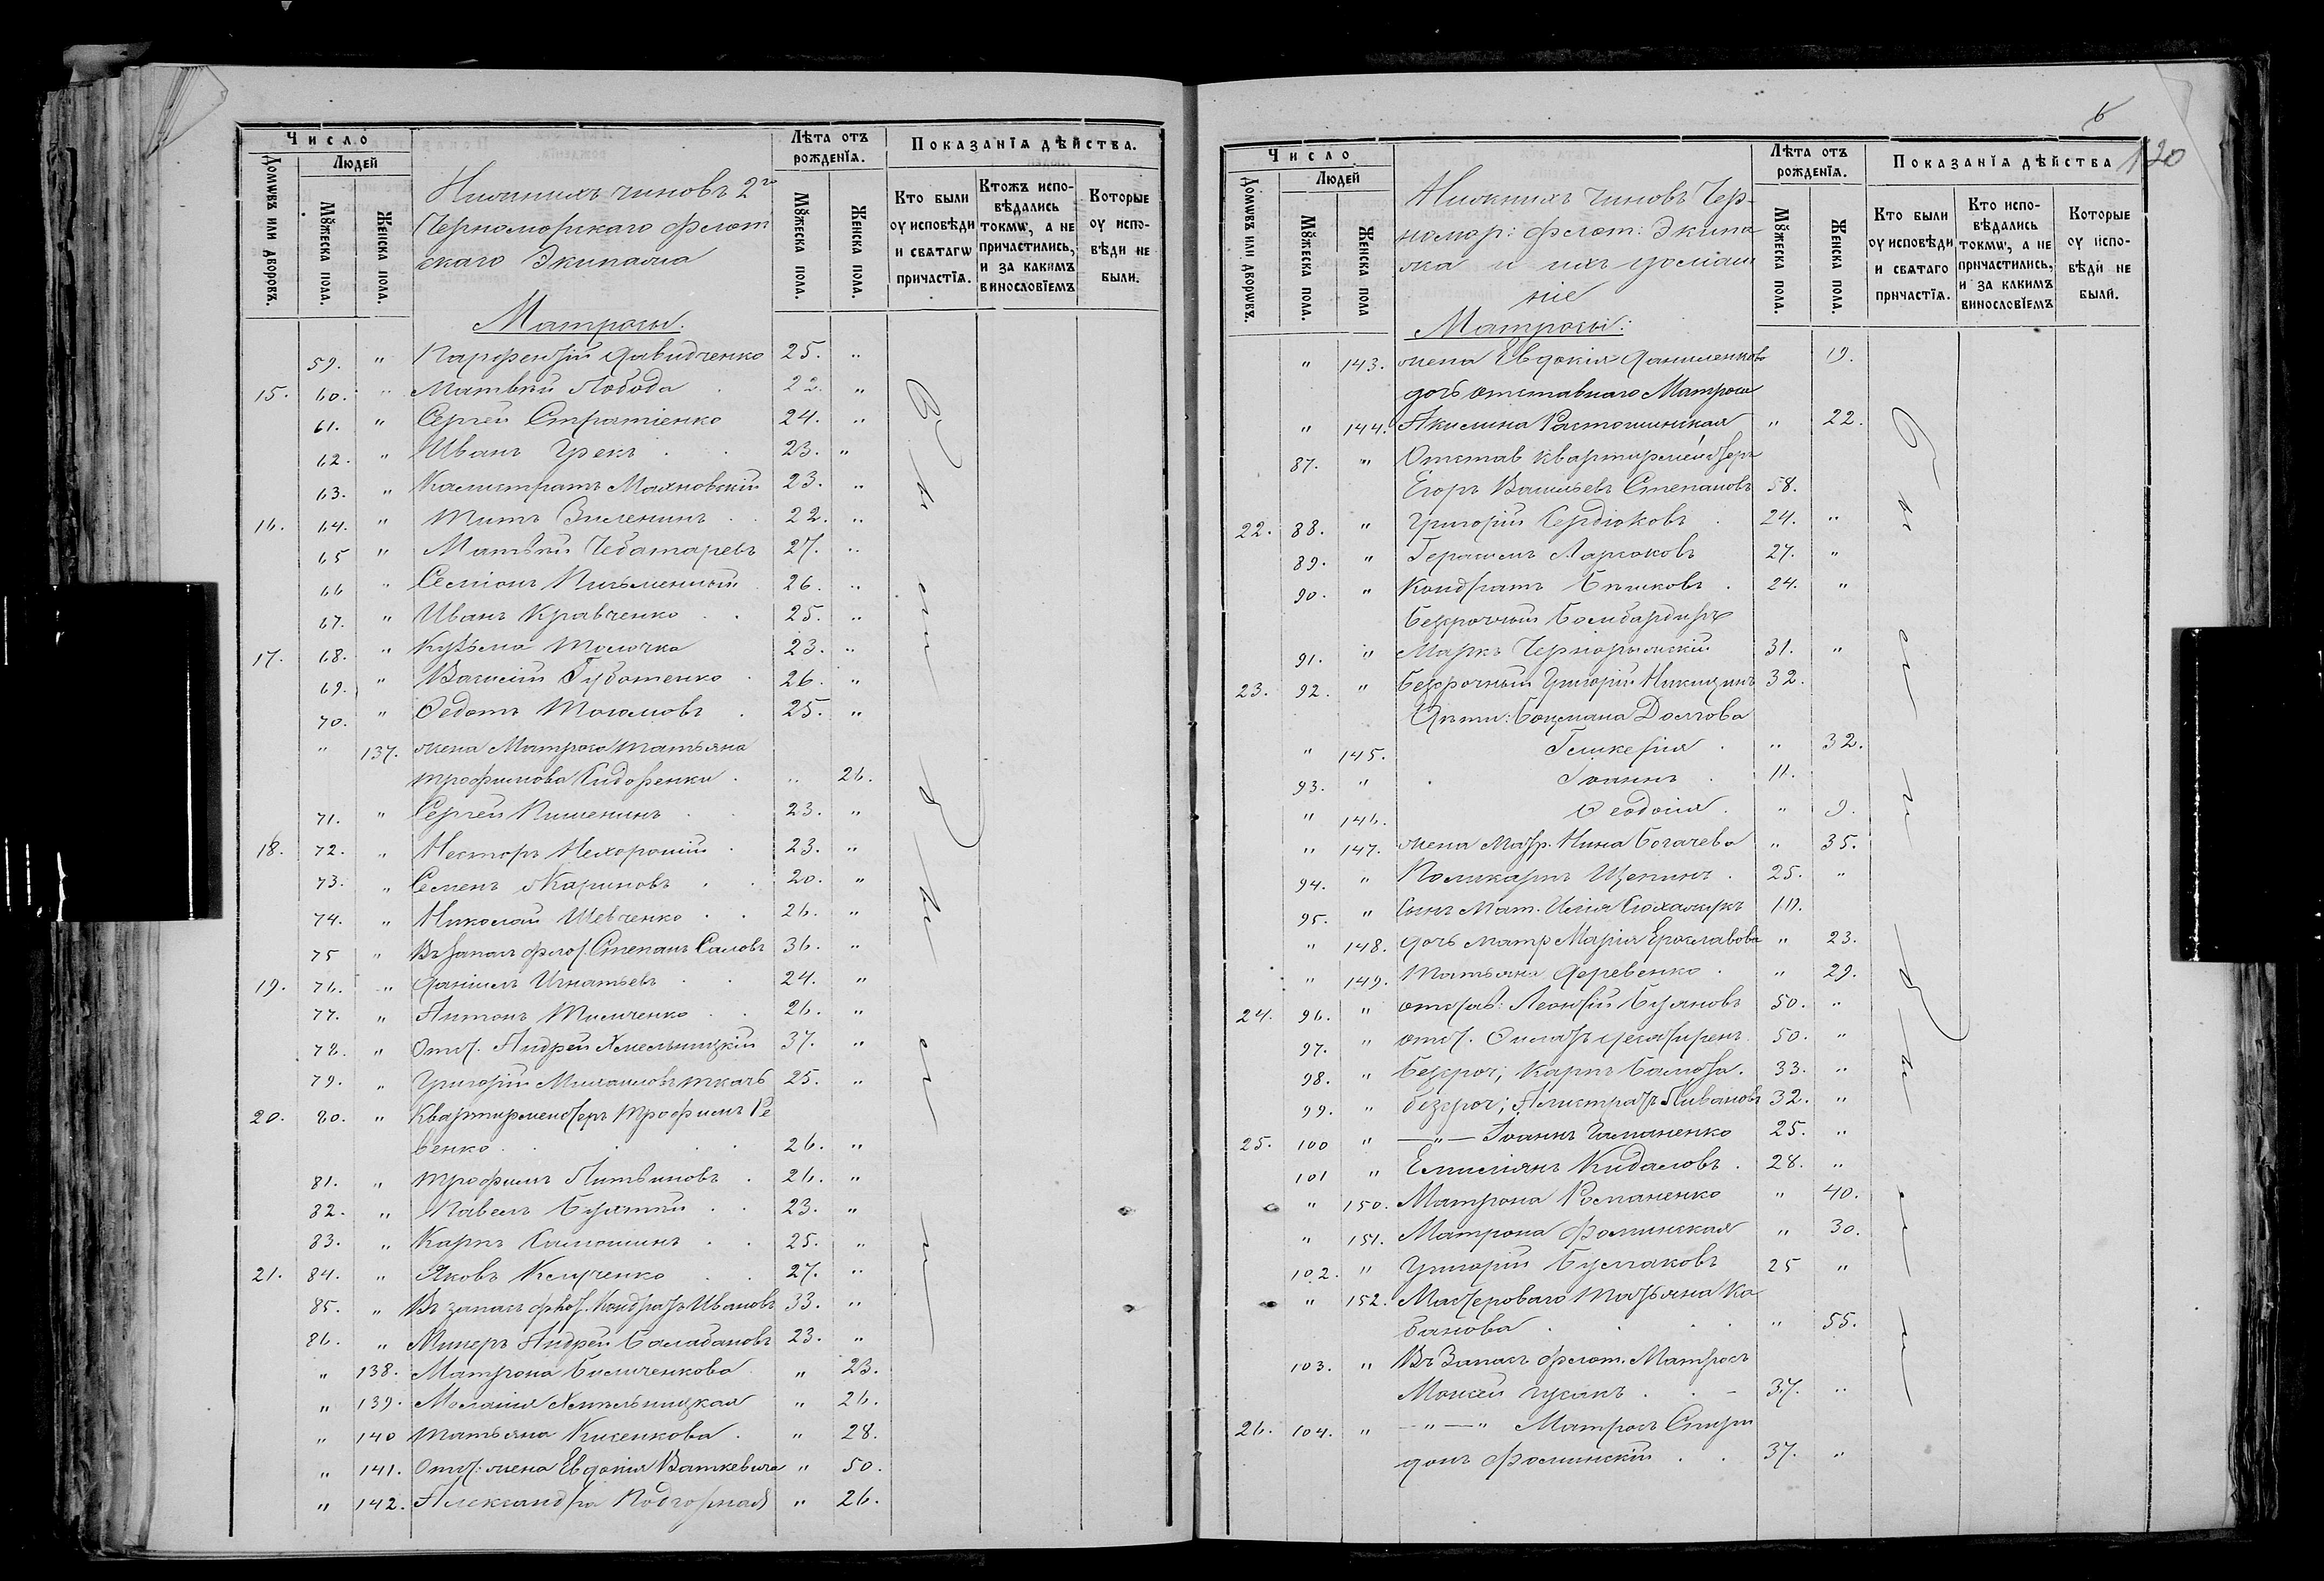 Число
Людей
Домѡвъ или дворовъ.
Мꙋжеска пола.
Женска пола.
Нижнихъ чиновъ 2го
Черноморскаго флот
скаго Экипажа
Матросы:
Лѣта отъ рожденїѧ.
Мꙋжеска пола.
Женска пола.
Показанїѧ дѣйства.
Кто были оу исповѣди и свѧтагѡ причастїѧ.
Ктожъ исповѣдались токмѡ, а не причастились, и за какимъ винословїемъ
Которые оу исповѣди не были.
59. " Парфентій Давидченко 25. "
15. 60. " Матвѣй Лобода 22. "
61. " Сергѣй Стратіенко 24. "
62. " Иванъ Грекъ 23. "
63. " Калистратъ Маяновскій 23. "
16. 64. " Титъ 22. "
65 " Матвѣй Чеботаревъ 27. "
66 " Семіонъ Письменный 26. "
67. " Иванъ Кравченко 25. "
17. 68. " Кузьма Толочка 23. "
69. " Василій Губотенко 26. "
70. " Федотъ 25. "
" 137. жена Матроса Татьяна
Трофимова Сидоренки " 26.
71. " Сергѣй Пишенинъ 23. "
18. 72. " Несторъ Нехорошій 23. "
73. " Семенъ Жариновъ 20. "
74. " Николай Шевченко 26. "
75 " Въ запас флот. Степанъ Саловъ 36. "
19. 76. " Даніилъ Игнатьевъ 24. "
77. " Антонъ Тимченко 26. "
78. " Отст. Андрей Хмельницкій 37. "
79. " Григорій Михайловъ Ткачъ 25. "
20. 80. " Квартирмейстеръ Трофимъ Ре
бенко 26. "
81. " Трофимъ Литвиновъ 26. "
82. " Павелъ 23. "
83. " Карпъ Самошинъ 25. "
21. 84. " Яковъ Клученко 27. "
85. " Въ запас флот. Кондратъ Ивановъ 33. "
86. " Минеръ Андрей Балабановъ 23. "
" 138. Матрона Биличенкова " 23.
" 139. Меланія Хмельницкая " 26.
" 140 Татьяна Кисенкова " 28.
" 141. Отст: жена Евдокія Ваткевича " 50.
" 142. Александра Подгорная " 26.
Были
были
120
Число
Людей
Домѡвъ или дворѡвъ.
Мꙋжеска пола.
Женска пола
Нижнихъ чиновъ Чер-
номор: флот: Экипа
жа и ихъ домаш
ніе
Матросы:
Лѣта отъ рожденїѧ.
Мꙋжеска пола.
Женска пола.
Показанїѧ дѣйства
Кто были оу исповѣди и свѧтаго причастїѧ.
Кто исповѣдались токмѡ, а не причастились, и за какимъ винословїемъ
Которые оу исповѣди не были.
" 143. жена Евдокія Даниленково 19.
дочь отставнаго Матроса
" 144. Акилина Растошинская " 22.
87. " Отстав квартирмейстеръ
Егоръ Васильевъ Степановъ 58.
22. 88. " Григорій Сердюковъ 24. "
89. " Герасимъ Ларюковъ 27. "
90. " Кондратъ 24. "
безсрочный бомбардиръ
91. " Маркъ 31. "
23. 92. " безсрочный Григорій Никицинъ 32.
Дѣти: боцмана Долгова
" 145. Гликерія " 32.
93. " Іоаннъ 11.
" 146. Феодосія " 9.
" 147. жена Матр. Нина Богачева " 35.
94. " Поликарпъ Щепинъ 25. "
95. " Сынъ Мат. Илія 10.
" 148. дочь матр Марія Ерославова " 23.
" 149. Татьяна Деревенко " 29.
24. 96. " отстав: Леонтій Бужановъ 50. "
97. " отст. 50. "
98. " безсроч; Карпъ 33. "
99. " безсроч; Ливановъ 32. "
25. 100 " —"— Іоаннъ Гапаненко 25. "
101 " Емиліянъ Кидаловъ 28. "
" 150. Матрона Романенко " 40.
" 151. Матрона Фоминская " 30.
102. " Григорій Бурлаковъ 25 "
" 152. Мастероваго Татьяна Ка
банова " 55.
103. " Въ Запасъ флот. Матросъ
Моисей Гусакъ 37. "
26. 104. " —"—" Матросъ Спири
донъ Фоминскій 37. "
Были
были